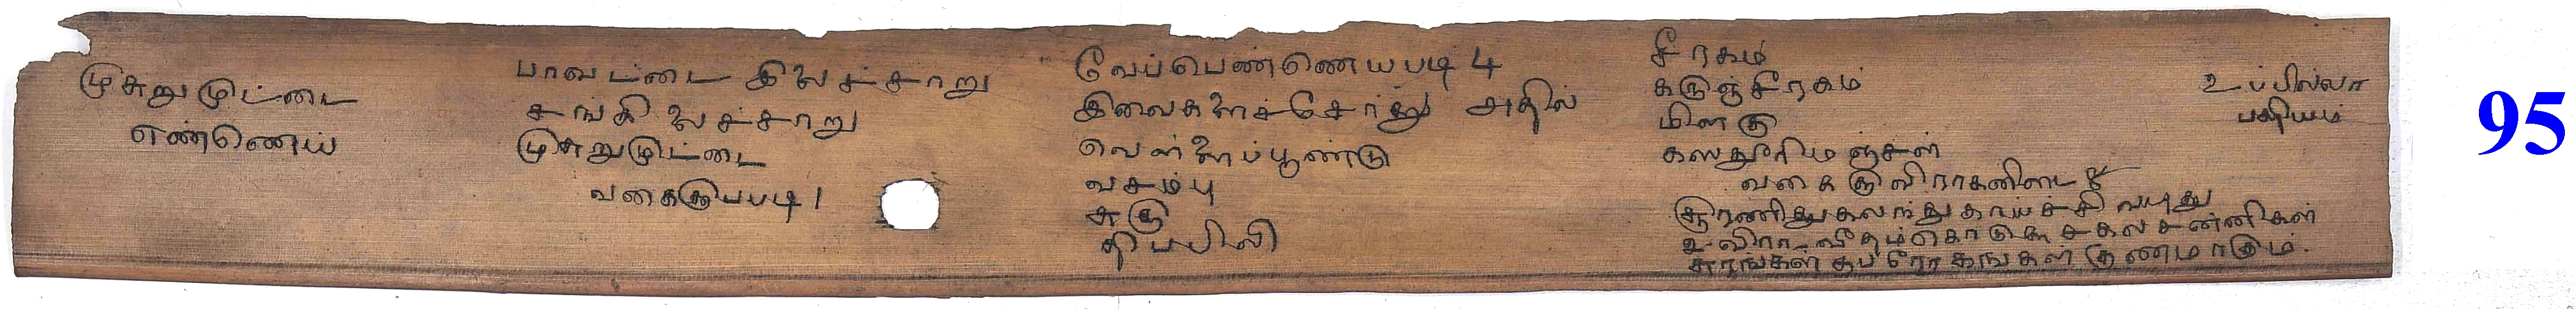 முசுறுமுட்டை
எண்ணெய்
பாவட்டை இலைச்சாறு
சங்கிலைச்சாறு
முசுறுமுட்டை
வகைக்குபடி 1
வேப்பெண்ணெயபடி 4
இவைகளைச்சேர்த்து அதில்
வெள்ளைப்பூண்டு
வசம்பு
சுக்கு
திப்பிலி
சீரகம்
கருஞ்சீரகம்
மிளகு
கஸ்தூரிமஞ்சள்
வகைக்கு விராகனிடை
சூரணித்துகலந்துகாய்ச்சி
வீதம்கொடுக்க சகலசன்னிகள்
சுரங்கள் குணமாகும்.
உப்பில்லா
பத்தியம்
95